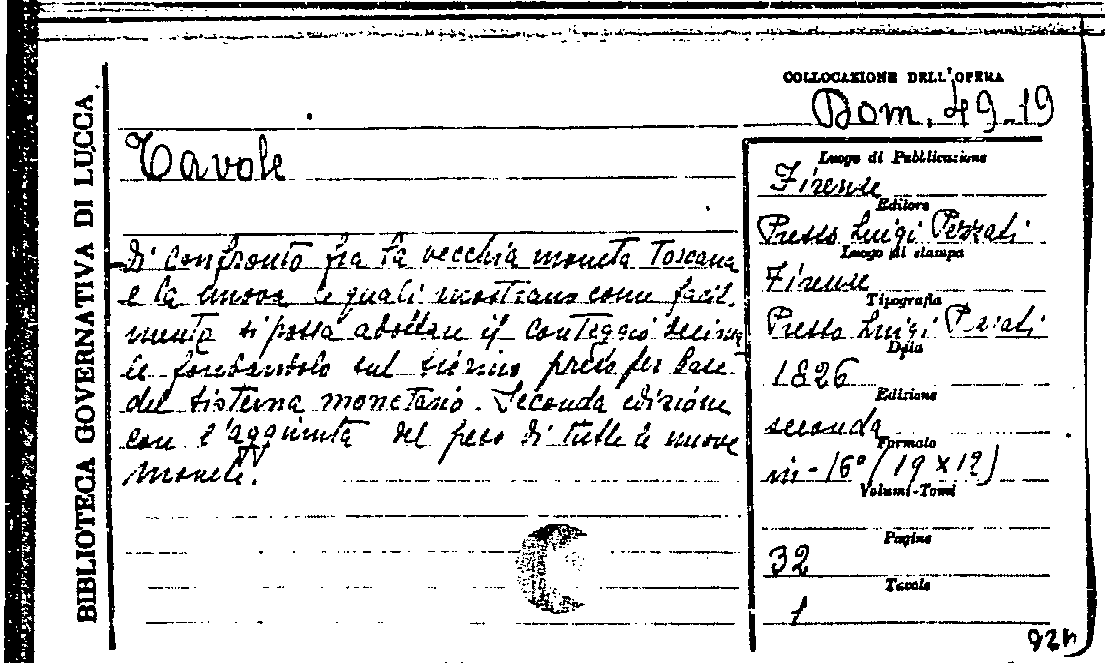 BIBLIOTECA GOVERNATIVA DI LUCCA
COLLOCAZIONE DELL'OPERA
Dom. 49-19
Tavole
di confronto fra la vecchia moneta Toscana
e la nuova le quali mostrano come facil-
mente si possa adottare il conteggio decima
le fondandolo sul fiorino preso per base
del sistema monetario. Seconda edizione
con l'aggiunta del peso di tutte le nuove
monete.
Luogo di Pubblicazione
Firenze
Editore
Presso Luigi Pezzati
Luogo di stampa
Firenze
Tipografia
Presso Luigi Pezzati
Data
1826
Edizione
seconda
Formato
in-16° (19x12)
Volumi-Tomi
Pagine
32
Tavole
1